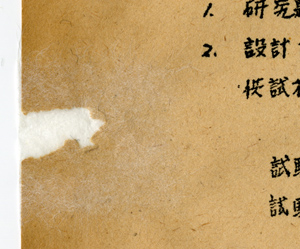 1. 研究
2. 設計
按試
試
試